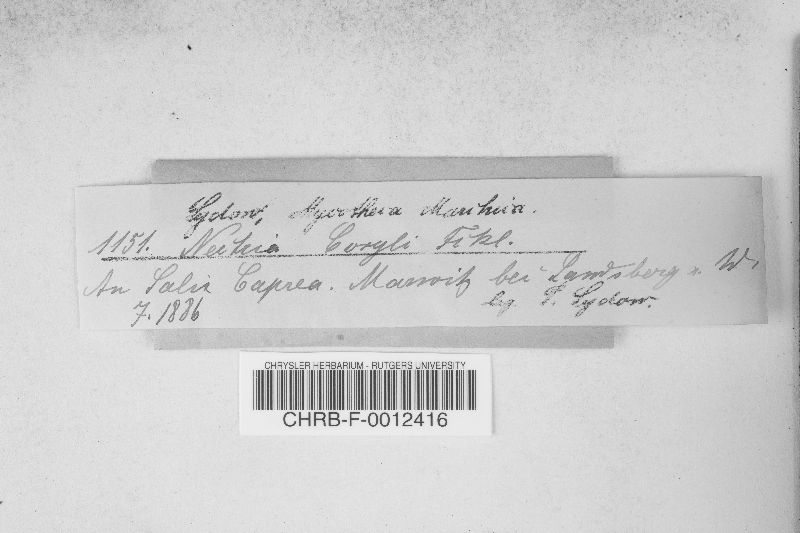 Sydow, Mycotheca Marchica.
1151. Nectria Coryli Fckl.
An Salix Caprea. Marwitz bei Landsberg a. W.
7. 1886
lg. P. Sydow.
CHRYSLER HERBARIUM - RUTGERS UNIVERSITY
CHRB-F-0012416